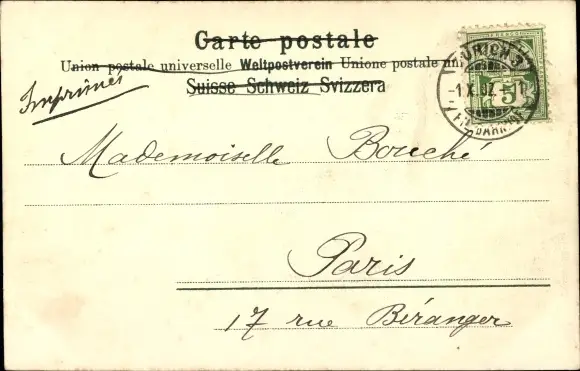 Carte postale
Union postale universelle Weltpostverein Unione postale
Suisse Schweiz Svizzera
Imprimés
ZÜRICH 3
-1.X.02.-
5
Mademoiselle Bouché
Paris
17 rue Béranger